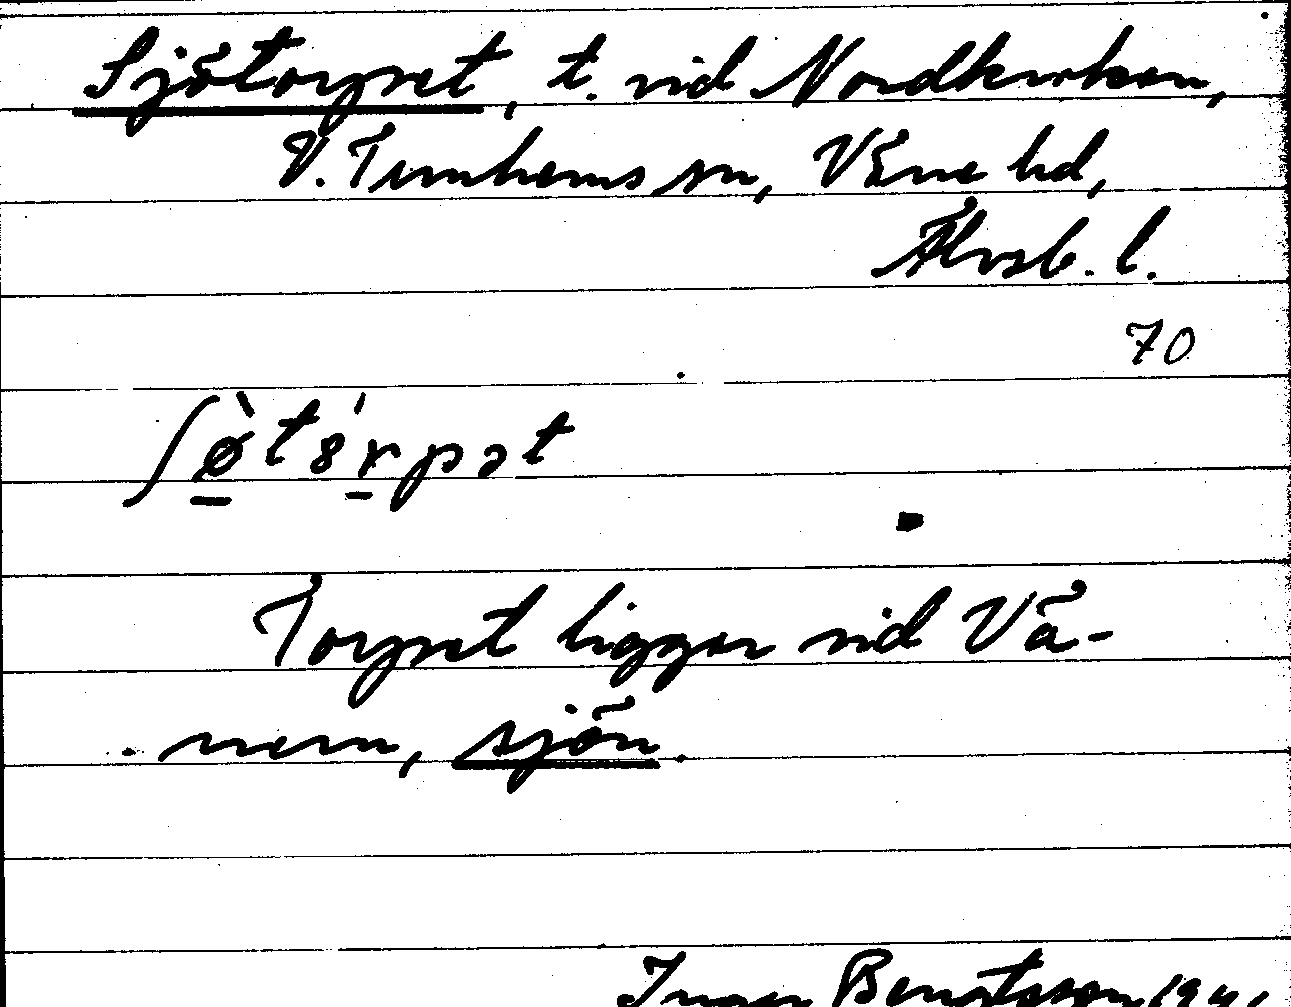 Sjötorpet, t. vid Nordkroken,
V. Tunhems sn, Väne hd,
Älvsb. l.
70
ʃø̀tȣ́rpət
Torpet ligger vid Vä-
nern, sjön.
Inger Bengtsson 1941